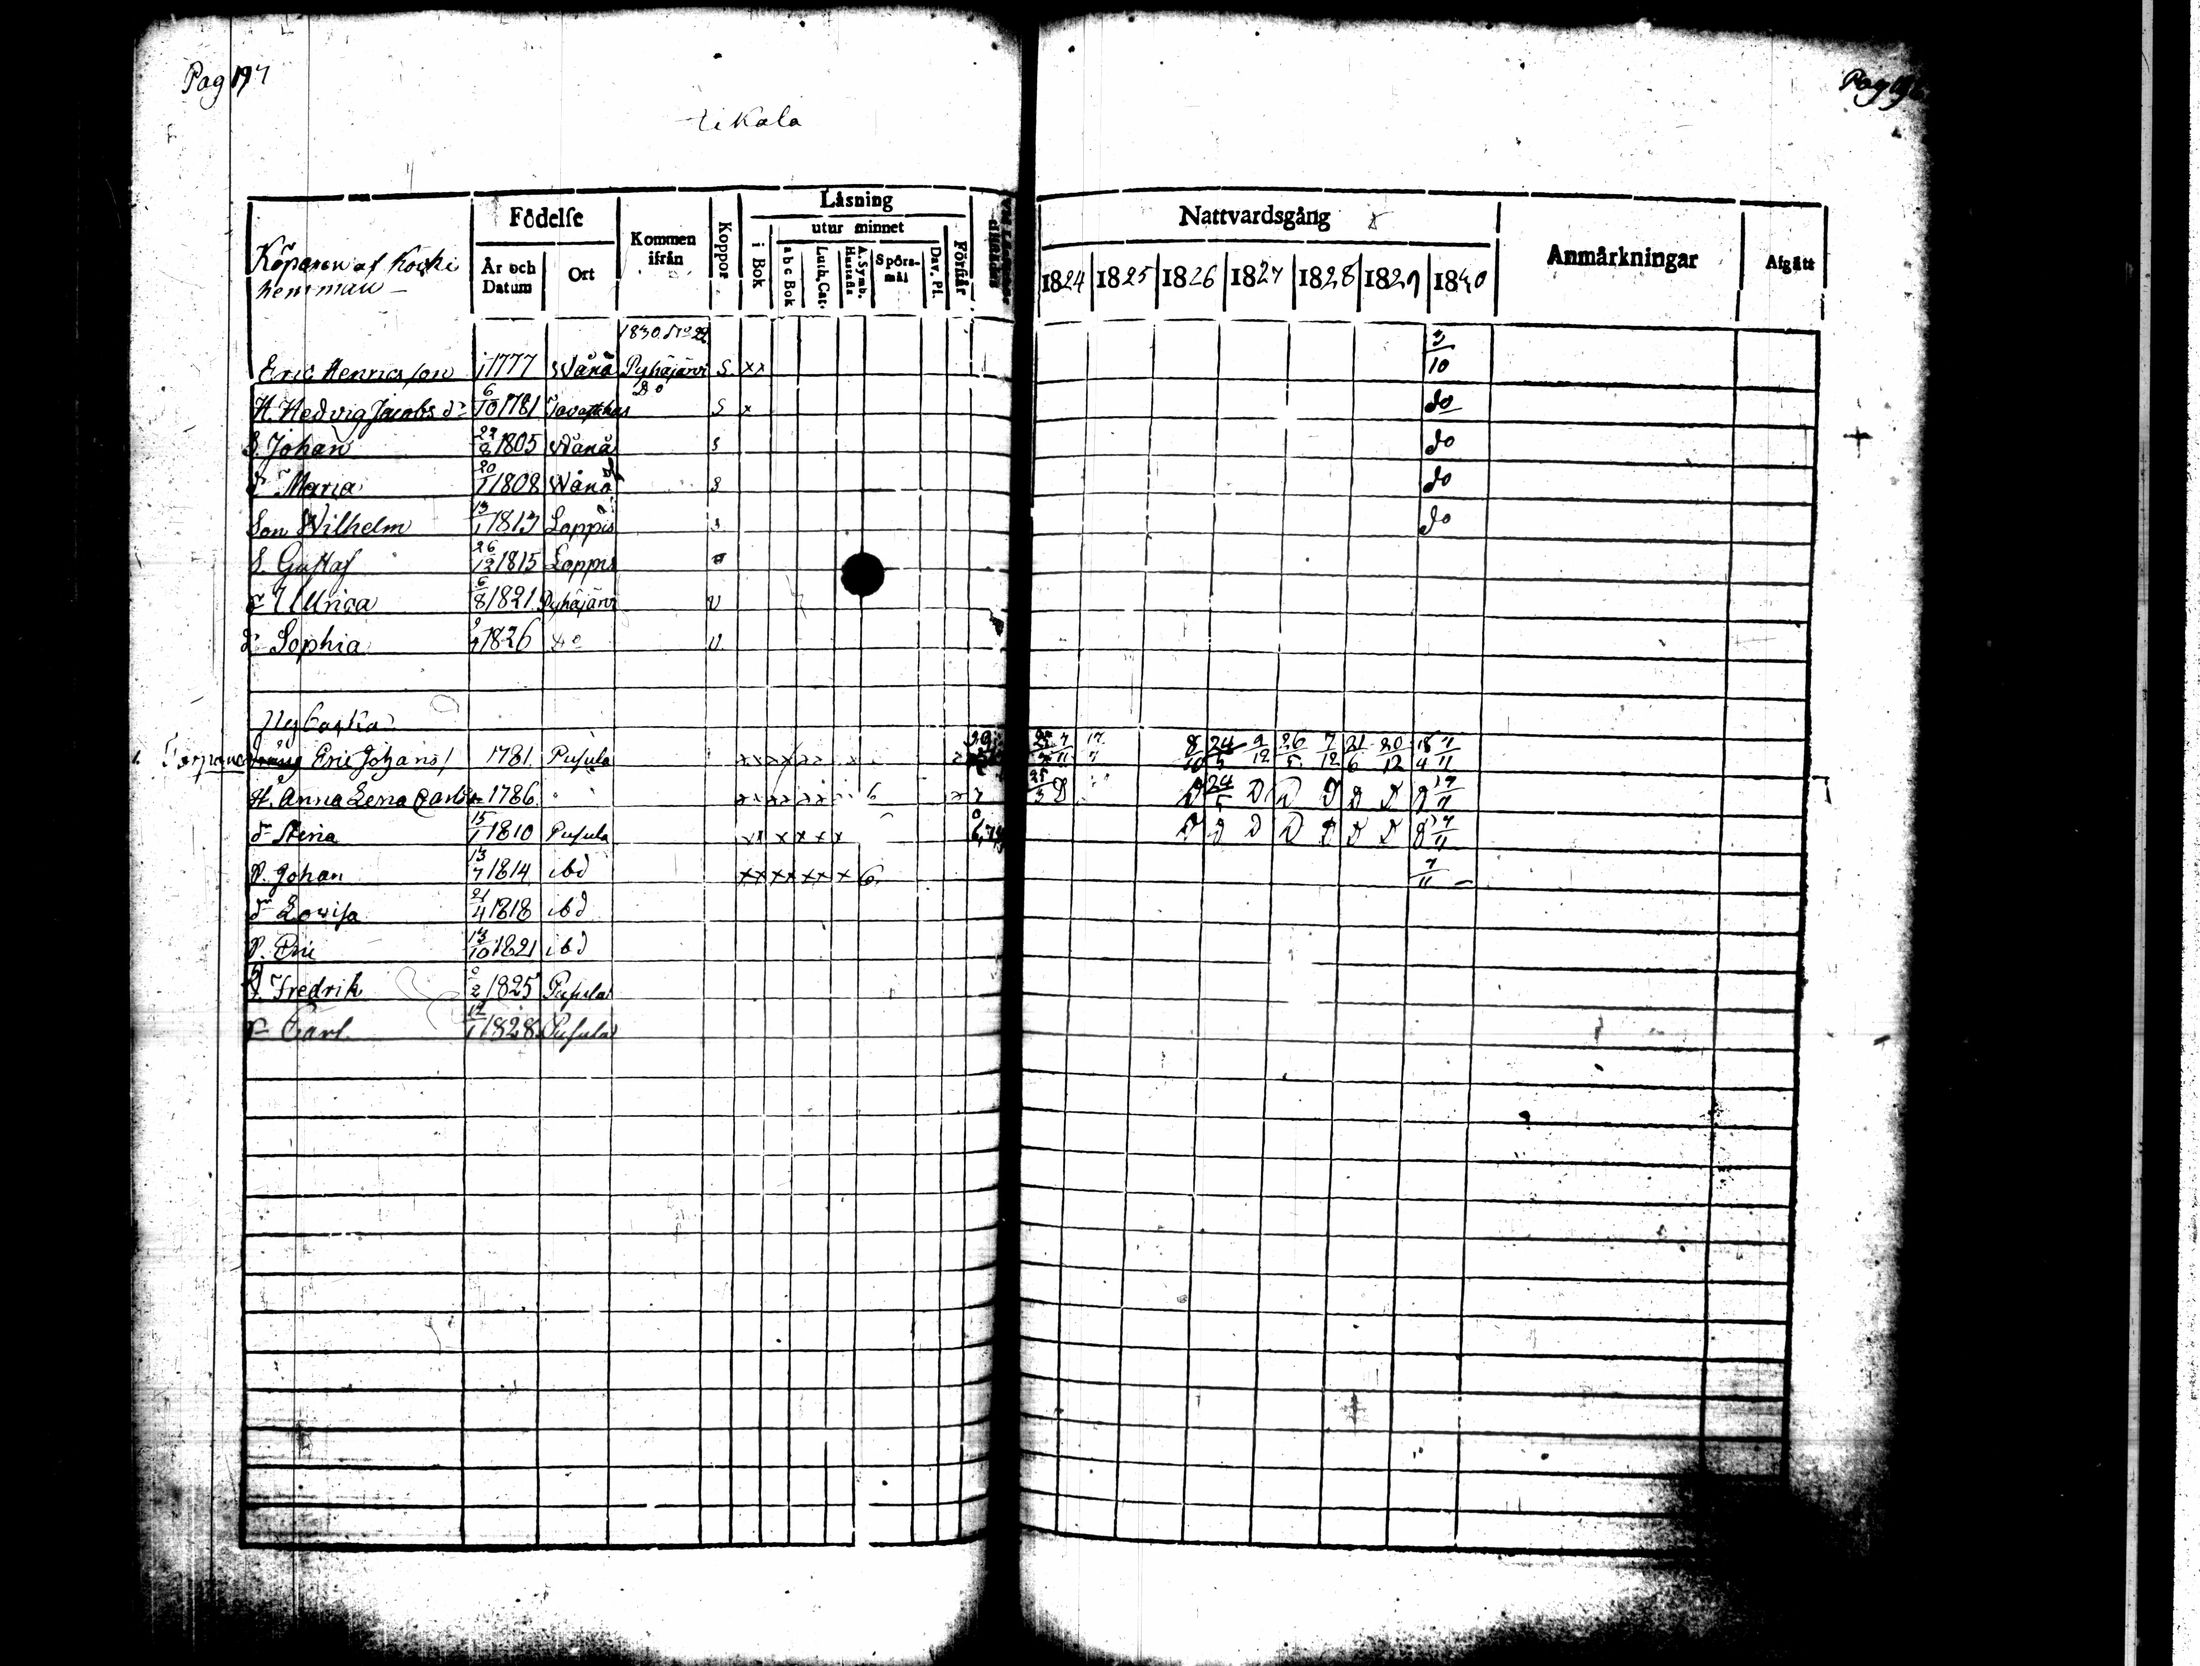 Pag 197
Pag
ikala
Köparen af Koski hemman
Födelse
År och Datum
Ort
Kommen ifrån
Koppor
Läsning
i Bok
utur minnet
a b c Bok
Luth. Cat.
A. Symb. Hustafla
Spörs-mål
Dav. Ps.
Förstår
Nattvardsgång
1824 1825 1826 1827 1828 1829 1830
Anmärkningar
Afgått
1830. No 22
Eric Henricsson 1777 Wånå Pyhäjärvi S. xx 3/10
H. Hedvig Jacobs dr 6/10 1781 Tavasthus Do S x do
S. Johan 1805 Wånå s do
dr Maria 20/1 1808 Wånå s do
Son Wilhelm 13/1 1813 Loppis s do
S. Gustaf 26/12 1815 Loppis
dr Ulrica 6/8 1821 Pyhäjärvi U
dr Sophia 1826 do U
Torpare Eric Johans 1781 Pusula xxxxxx x 8/10 24/5 9/12 26/5 7/12 21/6 20/12 18/4 7/11
H. Anna Lena Carls dr 1786 " xxxxxx 6 x 7 25/3 D D 24/5 D D D D D D 7/11
dr Stina 15/1 1810 Pusula xx x x x x D D D D D D D D 7/11
S. Johan 13/7 1814 ibd xx xx xx x 6. 7/11
dr Lovisa 21/4 1818 ibd
S. Eric 13/10 1821 ibd
S. Fredrik 1825 Pusula
Carl 12/1 1828 Pusula